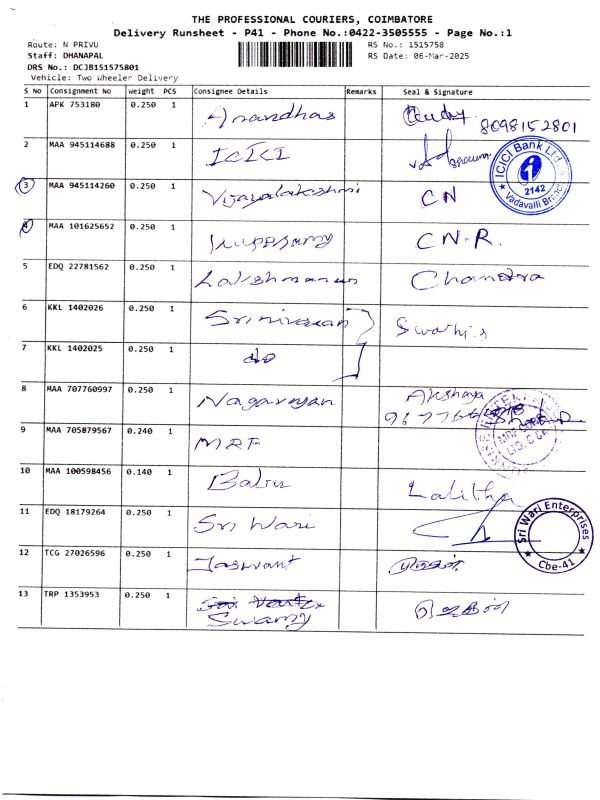 THE PROFESSIONAL COURIERS, COIMBATORE
Delivery Runsheet - P41 - Phone No.:0422-3505555 - Page No.:1
Route: N PRIVU
RS No.: 1515758
Staff: DHANAPAL
RS Date: 06-Mar-2025
DRS No.: DCJB151575801
Vehicle: Two Wheeler Delivery
S No Consignment No Weight PCS Consignee Details Remarks Seal & Signature
1 APK 753180 0.250 1 Anandhas 8098152801
2 MAA 945114688 0.250 1 ICICI
ICICI Bank Ltd. 2142 Vadavalli Branch
3 MAA 945114260 0.250 1 Vijayalakshmi CN
4 MAA 101625652 0.250 1 Kuppusamy CN-R.
5 EDQ 22781562 0.250 1 Lakshmanan Chandra
6 KKL 1402026 0.250 1 Srinivasan Swathi.s
7 KKL 1402025 0.250 1 do
8 MAA 707760997 0.250 1 Nagarajan Akshaya
9 MAA 705879567 0.240 1 MRF
MRF CORP LTD. C
10 MAA 100598456 0.140 1 Balu Lalitha
11 EDQ 18179264 0.250 1 Sri Wari
Sri Wari Enterprises Cbe-41
12 TCG 27026596 0.250 1 Jaswant
13 TRP 1353953 0.250 1 Swamy